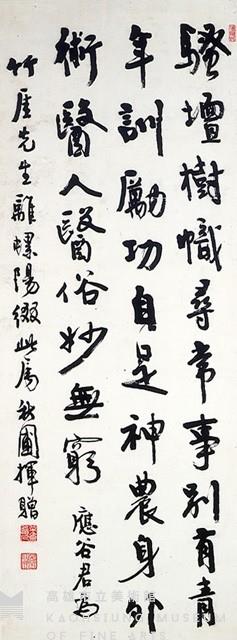 騷壇樹幟尋常事別有青
年訓勵功自是神農身外
術醫人醫俗妙無窮應谷君為
竹崖先生離螺陽綴此屬秋圃揮贈
高雄市立美術館
KAOHSIUNG MUSEUM
OF FINE ARTS